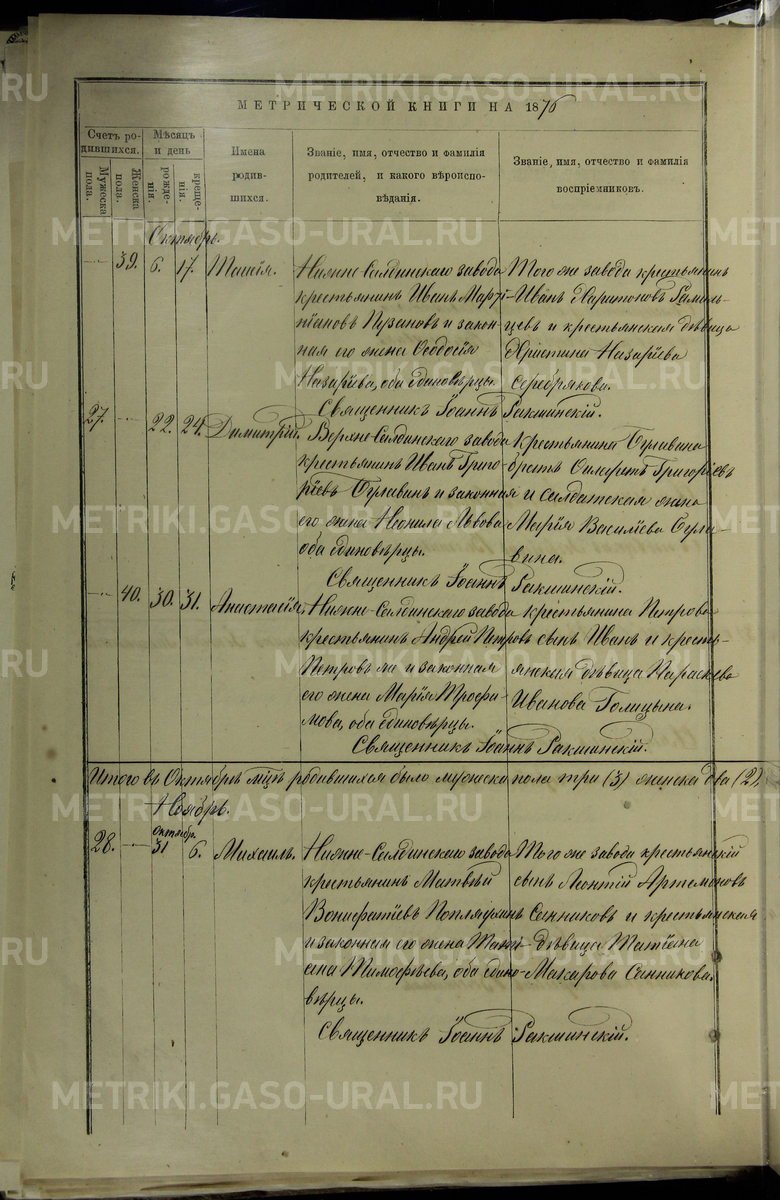 МЕТРИЧЕСКОЙ КНИГИ НА 1876
Счетъ родившихся.
Мужеска пола.
Женска пола.
Мѣсяцъ и день
рожденія.
крещенія.
Имена родившихся.
Званіе, имя, отчество и фамилія родителей, и какого вѣроисповѣданія.
Званіе, имя, отчество и фамилія воспріемниковъ.
Октябрь.
39. 6. 17. Таисія.
Нижне-Салдинскаго завода
крестьянинъ Иванъ
Пузановъ и закон-
ная его жена Ѳеодосія
Назаріева, оба единовѣрцы.
Того же завода крестьянинъ
Иванъ Харитоновъ
и крестьянская дѣвица
Христина Назаріева
Серебрякова.
Священникъ Іоаннъ Ракшинскій.
27. 22. 24. Димитрій.
Верхне-Салдинскаго завода
крестьянинъ Иванъ Григо-
ріевъ и законная
его жена Неонила Львова
оба единовѣрцы.
Крестьянина
братъ Григоріевъ
и салдатская жена
Марія Василіева
Священникъ Іоаннъ Ракшинскій.
40. 30. 31. Анастасія.
Нижне-Салдинскаго завода
крестьянинъ Андрей Петровъ
Петровъ же и законная
его жена Марія Трофи-
мова, оба единовѣрцы.
крестьянина Петрова
сынъ Иванъ и кресть-
янская дѣвица Параскева
Иванова Голицына.
Священникъ Іоаннъ Ракшинскій.
Итого въ Октябрѣ мцѣ родившихся было мужска пола три (3) женска два (2).
Ноябрь.
Октябр.
28. 31 6. Михаилъ.
Нижне-Салдинскаго завода
крестьянинъ Матвѣй
Вонифатіевъ Поплаухинъ
и законная его жена Тать-
яна Тимоѳѣева, оба едино-
вѣрцы.
Того же завода крестьянскій
сынъ Леонтій Артемоновъ
Санниковъ и крестьянская
дѣвица Татіана
Макарова Санникова.
Священникъ Іоаннъ Ракшинскій.
METRIKI.GASO-URAL.RU